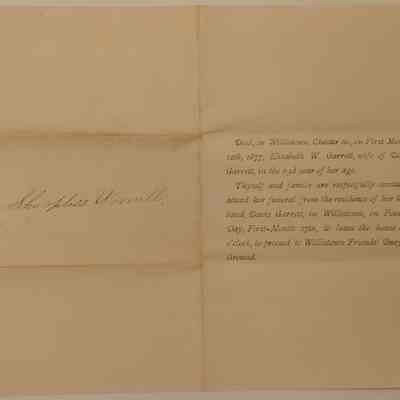 Sharpless Worrall,
Died, in Willistown, Chester co., on First Mo
1877, Elizabeth W. Garrett, wife of
Garrett, in the year of her age.
Thyself and family are respectfully
attend her funeral from the residence of her
band, Garrett, in Willistown, on
Day, First-Month to leave the house
o'clock, to proceed to Willistown Friends'
Ground.